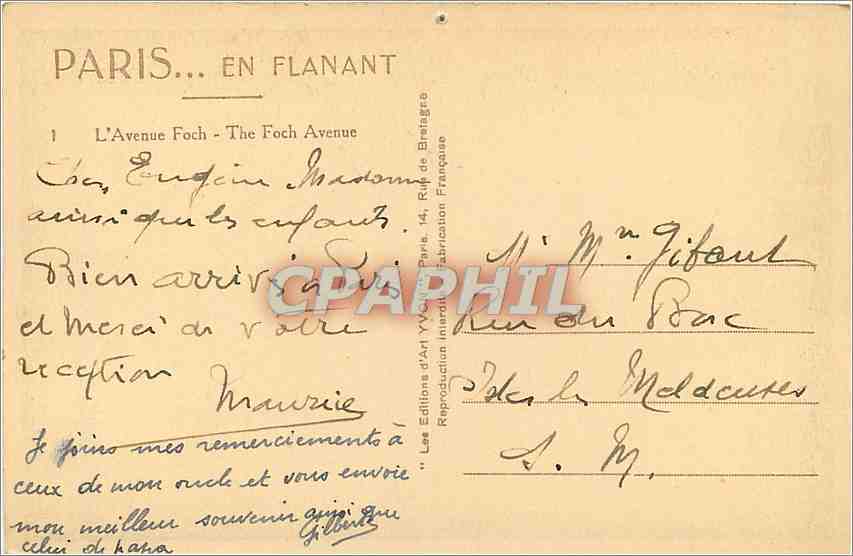 PARIS... EN FLANANT
1 L'Avenue Foch - The Foch Avenue
Cher Eugène, Madame
ainsi que les enfants.
Bien arrivé à Paris
et Merci de votre
réception
Maurice
Je joins mes remerciements à
ceux de mon oncle et vous envoie
mon meilleur souvenir ainsi que
celui de papa
Gilberte
" Les Editions d'Art YVON " Paris. 14, Rue de Bretagne
Reproduction interdite Fabrication Française
CPAPHIL
Mr Mme
Rue du Bac
Isles les Meldeuses
S. M.